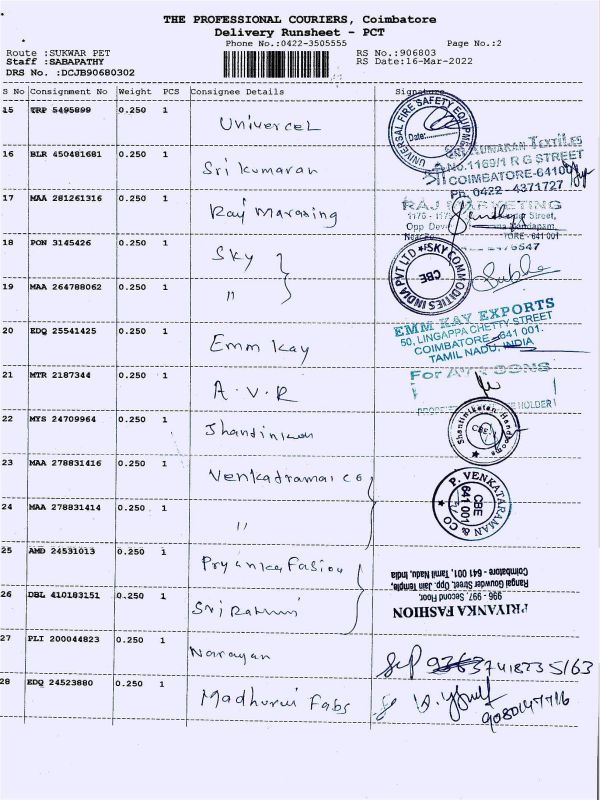 THE PROFESSIONAL COURIERS, Coimbatore
Delivery Runsheet - PCT
Phone No.:0422-3505555 Page No.:2
Route :SUKWAR PET RS No.:906803
Staff :SABAPATHY RS Date:16-Mar-2022
DRS No. :DCJB90680302
S No Consignment No Weight PCS Consignee Details Signature
15 TRP 5495899 0.250 1 Univercel
UNIVERSAL FIRE SAFETY EQUIPMENT
Date:
16 BLR 450481681 0.250 1 Sri kumaran
SRI KUMARAN TEXTILES
No.1169/1 R G STREET
COIMBATORE-641001
Ph: 0422 - 4371727
17 MAA 281261316 0.250 1 Raj
RAJ MARKETING
Street,
18 PON 3145426 0.250 1 Sky
19 MAA 264788062 0.250 1 "
SKY COMMODITIES INDIA PVT LTD
CBE
20 EDQ 25541425 0.250 1 Emm Kay
EMM KAY EXPORTS
50, LINGAPPA CHETTY STREET
COIMBATORE - 641 001.
TAMIL NADU, INDIA
21 MTR 2187344 0.250 1 A.V.R
For
HOLDER
22 MYS 24709964 0.250 1
Shantiniketan Handlooms
CBE
23 MAA 278831416 0.250 1
24 MAA 278831414 0.250 1 "
P. VENKATARAMAN & CO
CBE
641 001
25 AMD 24531013 0.250 1 Pryanka Fasion
26 DBL 410183151 0.250 1
PRIYANKA FASHION
996 - 997, Second Floor,
Rangai Gowder Street, Opp. Jain Temple,
Coimbatore - 641 001, Tamil Nadu, India
27 PLI 200044823 0.250 1 Narayan
28 EDQ 24523880 0.250 1 Madhurui Fabs
9080147716